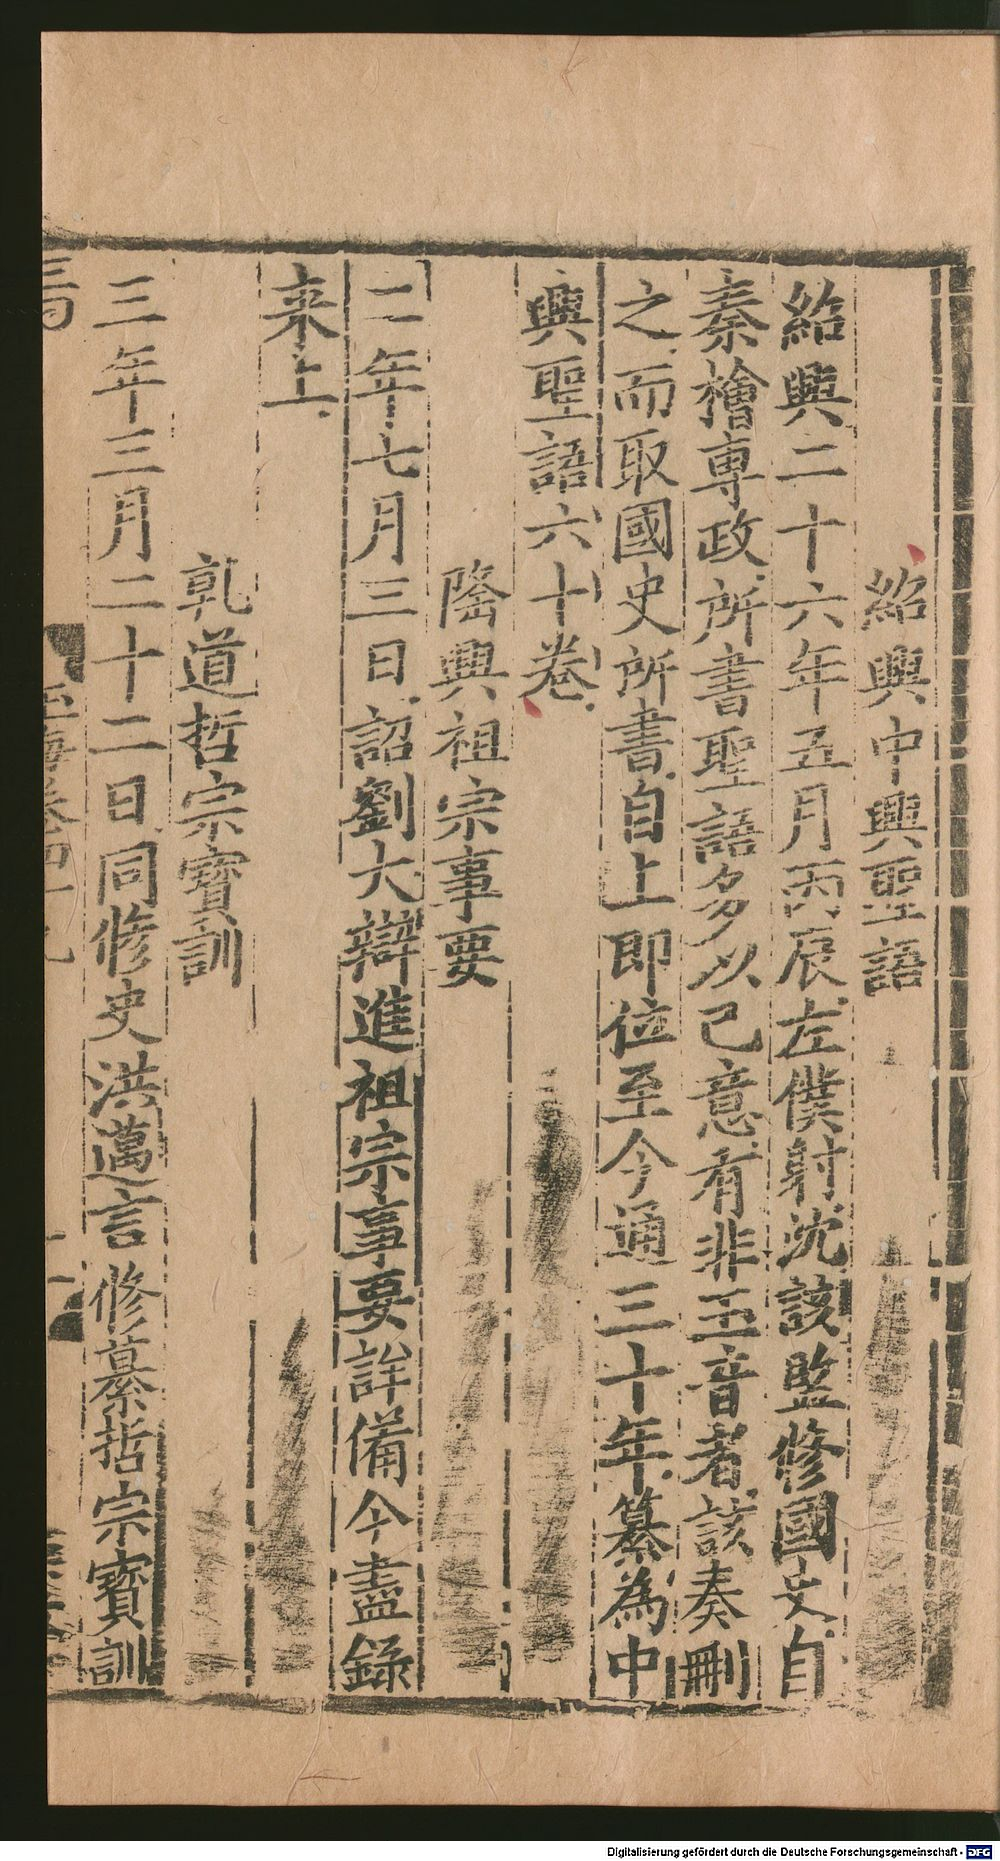 紹興中興聖語
紹興二十六年五月丙辰左僕射沈該監修國史自
秦檜專政所書聖語多以己意有非玉音者該奏刪
之而取國史所書自上即位至今通三十年纂為中
興聖語六十卷
隆興祖宗事要
二年七月三日詔劉大辯進祖宗事要詳備今盡錄
来上
乹道哲宗寶訓
三年三月二十二日同修史洪邁言修纂哲宗寶訓
Digitalisierung gefördert durch die Deutsche Forschungsgemeinschaft - DFG